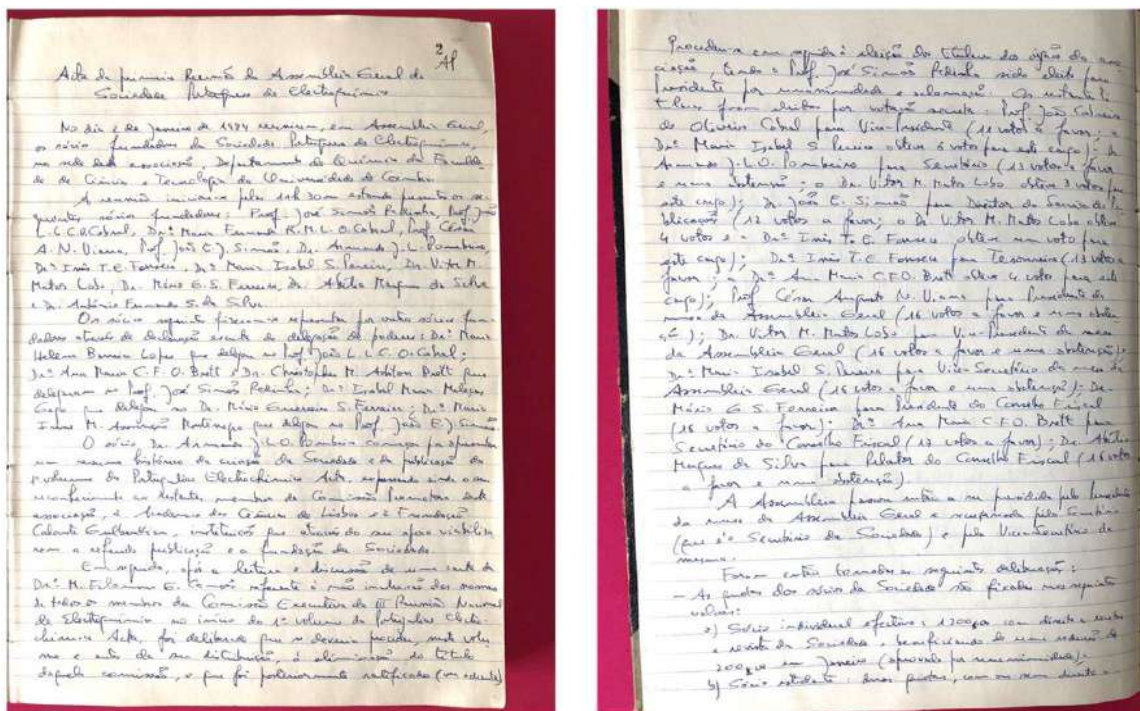 2
AP
Acta da primeira Reunião da Assembleia Geral da
Sociedade Portuguesa de Electroquímica
No dia 2 de Janeiro de 1984 reuniram, em Assembleia Geral,
os sócios fundadores da Sociedade Portuguesa de Electroquímica,
na sede desta associação, Departamento de Química da Faculda-
de de Ciências e Tecnologia da Universidade de Coimbra.
A reunião iniciou-se pelas 14h 30m estando presentes os se-
guintes sócios fundadores: Prof. José Simões Redinha, Prof. João
L.C.C.O.Cabral, Drª Maria Fernanda R.M.L.O.Cabral, Prof. César
A. N. Viana, Prof. João E.J. Simão, Dr. Armando J.L. Pombeiro,
Drª Inês T.E. Fonseca, Drª Maria Isabel S. Pereira, Dr. Victor M.
Matos Lobo, Dr. Mário G.S. Ferreira, Dr. Abílio Marques da Silva
e Dr. António Fernando S. da Silva.
Os sócios seguintes fizeram-se representar por outros sócios fun-
dadores através de declaração escrita de delegação de poderes: Drª Maria
Helena Lopes que delegou no Prof. João L.C.C.O.Cabral;
Drª Ana Maria C.F.O. Brett e Dr. Christopher M. Ashton Brett que
delegaram no Prof. José Simões Redinha; Drª Isabel Maria
que delegou no Dr. Mário Guerreiro S. Ferreira; Drª Maria
Irene M. Montenegro que delegou no Prof. João E.J. Simão.
O sócio Dr. Armando J.L.O. Pombeiro começou por apresentar
um resumo histórico da criação da Sociedade e da publicação do
1º volume da Portugaliae Electrochimica Acta, expressando ainda o seu
reconhecimento aos restantes membros da Comissão Promotora desta
associação, à Academia das Ciências de Lisboa e à Fundação
Calouste Gulbenkian, instituições que através do seu apoio viabiliza-
ram a referida publicação e a fundação da Sociedade.
Em seguida, após a leitura e discussão de uma carta da
Drª M. Filomena G. Camões referente à não inclusão dos nomes
de todos os membros da Comissão Executiva da III Reunião Nacional
de Electroquímica no início do 1º volume da Portugaliae Electro-
chimica Acta, foi deliberado que se deveria proceder, neste volu-
me e antes da sua distribuição, à eliminação do título
daquela comissão, o que foi posteriormente ratificado
Procedeu-se em seguida à eleição dos titulares dos órgãos da asso-
ciação, tendo o Prof. José Simões Redinha sido eleito para
Presidente por unanimidade e aclamação. Os restantes ti-
tulares foram eleitos por votação secreta: Prof. João Cabral
de Oliveira Cabral para Vice-Presidente (11 votos a favor; a
Drª Maria Isabel S. Pereira obteve 6 votos para este cargo); Dr.
Armando J.L.O. Pombeiro para Secretário (13 votos a favor
e uma abstenção; o Dr. Victor M. Matos Lobo obteve 3 votos para
este cargo); Dr. João E. Simão para Director do Serviço de Pu-
blicações (12 votos a favor; o Dr. Victor M. Matos Lobo obteve
4 votos e a Drª Inês T. E. Fonseca obteve um voto para
este cargo); Drª Inês T.E. Fonseca para Tesoureira (13 votos a
favor; a Drª Ana Maria C.F.O. Brett obteve 4 votos para este
cargo); Prof. César Augusto N. Viana para Presidente da
mesa da Assembleia Geral (16 votos a favor e uma absten-
ção); Dr. Victor M. Matos Lobo para Vice-Presidente da mesa
da Assembleia Geral (16 votos a favor e uma abstenção);
Drª Maria Isabel S. Pereira para Vice-Secretário da mesa da
Assembleia Geral (16 votos a favor e uma abstenção); Dr.
Mário G. S. Ferreira para Presidente do Conselho Fiscal
(16 votos a favor); Drª Ana Maria C.F.O. Brett para
Secretário do Conselho Fiscal (17 votos a favor); Dr. Abílio
Marques da Silva para Relator do Conselho Fiscal (16 votos
a favor e uma abstenção).
A Assembleia passou então a ser presidida pelo Presidente
da mesa da Assembleia Geral e secretariada pelo Secretário
(que é o Secretário da Sociedade) e pelo Vice-Secretário da
mesma.
Foram então tomadas as seguintes deliberações:
- As quotas dos sócios da Sociedade são fixadas nos seguintes
valores:
a) Sócio individual efectivo: 1200$00 com direito a receber
a revista da Sociedade, beneficiando de uma redução de
200$00 em Janeiro (aprovada por unanimidade);
b) Sócio estudante: duas quotas, com ou sem direito a